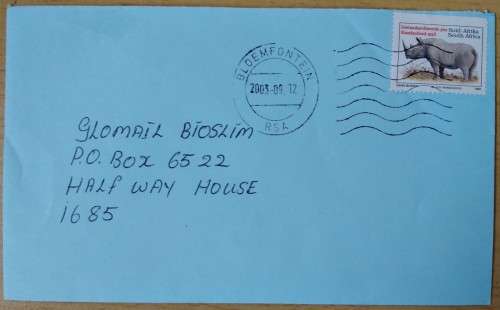 Suid-Afrika
South Africa
Standardised mail
BLOEMFONTEIN
2003-09.12
RSA
GLOMAIL BIOSLIM
P.O. BOX 6522
HALF WAY HOUSE
1685